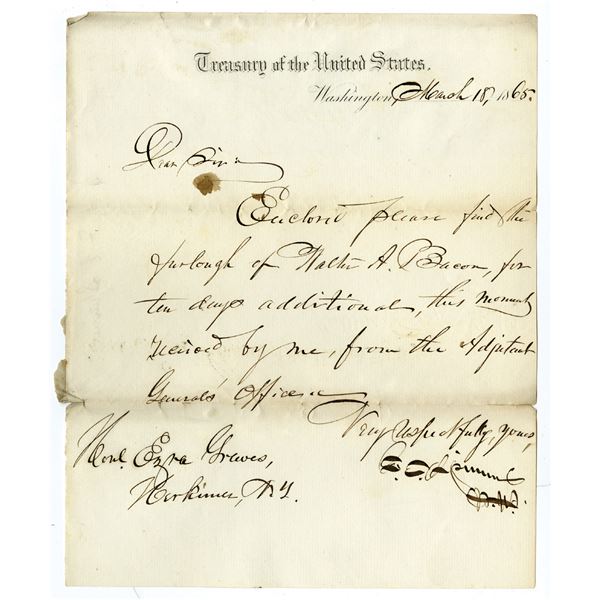 Treasury of the United States.
Washington, March 18, 1865.
Dear Sir
Enclosed please find the
furlough of Walter A. Bacon, for
ten days additional, this moment
received by me, from the Adjutant
General's Office
Very respectfully, yours,
Honl. Ezra Graves,
Herkimer, N.Y.